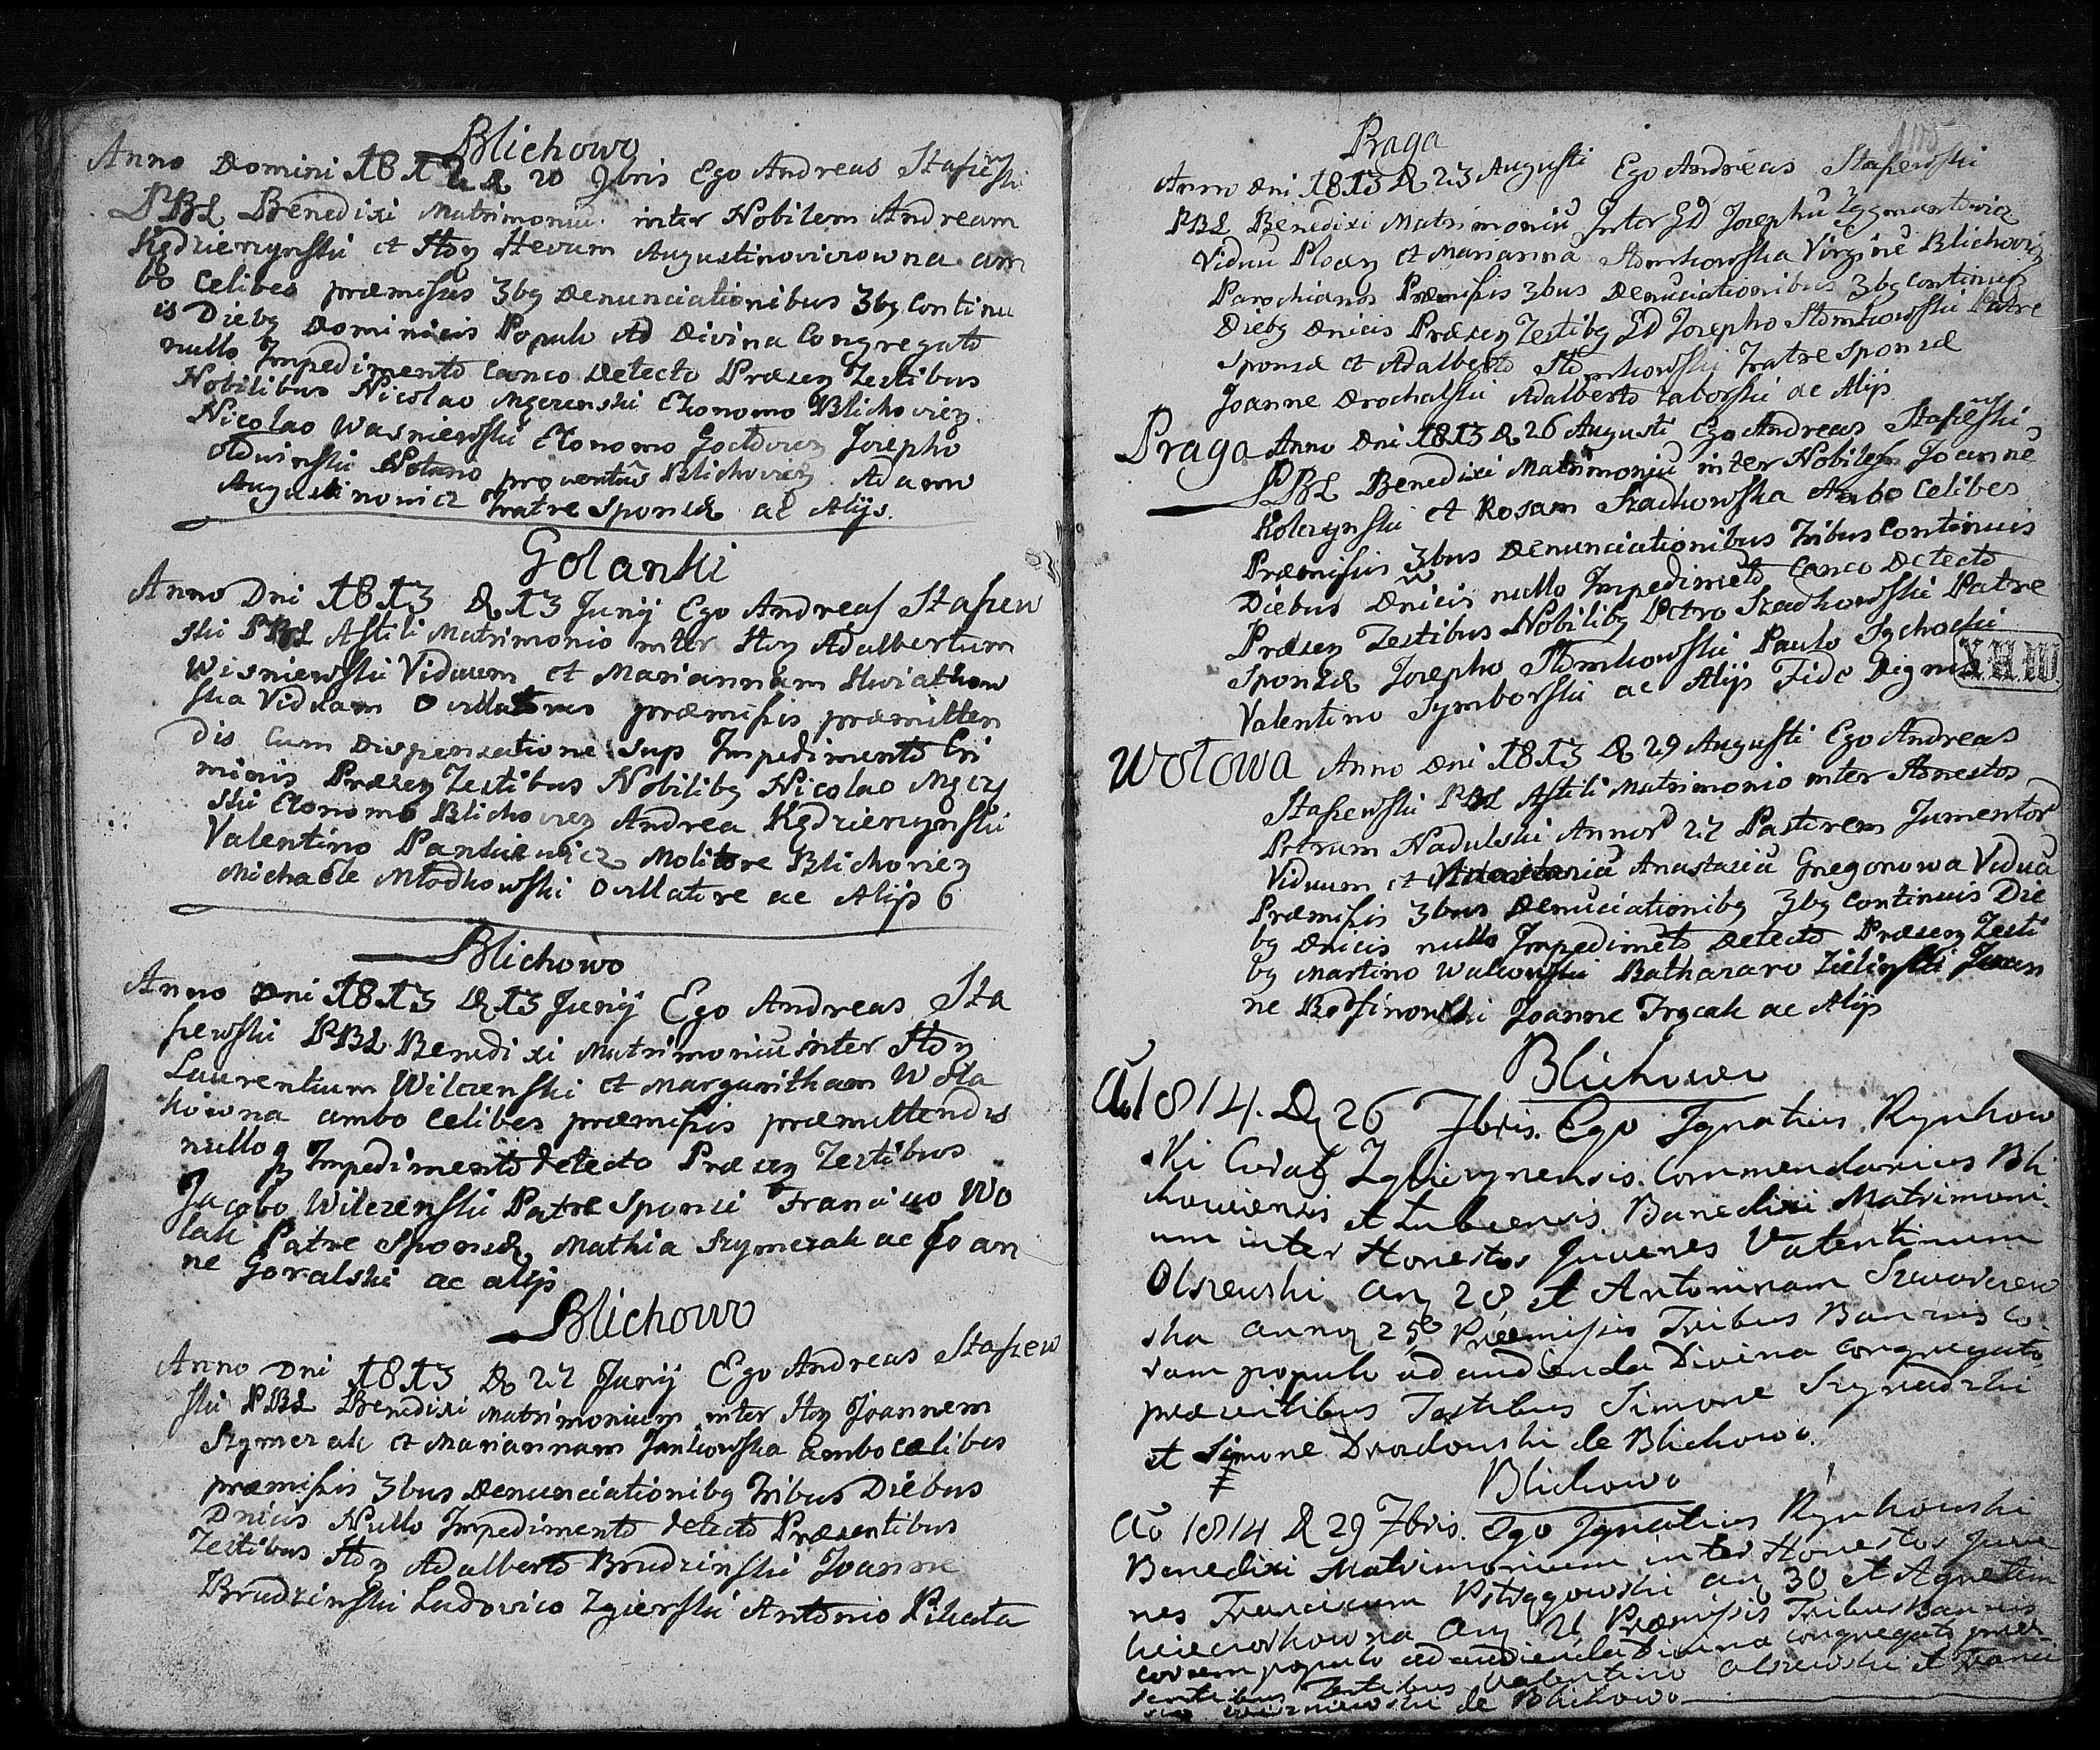 Blichowo
Anno Domini 1812 D 20 9bris Ego Andreas Staszewski
PBL Benedixi Matrimoniu inter Nobilem Andream
Kędzierzynski et Hon Hevam Augustinoviczowna am
bo Celibes præmissis 3bq Denunciationibus 3bq Continu
is Diebq Dominicis Populo Ad Divina Congregato
nullo Impedimento Canco Detecto Præsen Testibus
Nobilibus Nicolao Mgczenski Ekonomo Blichovien
Nicolao Wasniewski Ekonomo Josepho
Notario proventu Blichovien Adamo
Augustinowicz Fratre Sponsæ ac Alijs.
Golanki
Anno Dni 1813 D 13 Junij Ego Andreas Staszew
ski PBL Astiti Matrimonio inter Hon Adalbertum
Wisniewski Viduum et Mariannam Kwiatkow
ska Viduam Ovillatores præmissis præmitten
dis Cum Dispensatione sup Impedimento Cri
minis Præsen Testibus Nobilibq Nicolao Mgczy
ski Ekonomo Blichovien Andrea Kędzierzynski
Valentino Pankiewicz Molitore Blichovien
Michaele Młodkowski Ovillatore ac Alijs 6
Blichowo
Anno Dni 1813 D 13 Junij Ego Andreas Sta
szewski PBL Benedixi Matrimoniu inter Hon
Laurentium Wilczenski et Margaritham Wola
kowna ambo Celibes præmissis præmittendis
nulloq Impedimento detecto Præsen Testibus
Jacobo Wilczenski Patre Sponsi Francisco Wo
lak Patre Sponsæ Mathia Szymczak ac Joan
ne Goralski ac alijs
Blichowo
Anno Dni 1813 D 27 Junij Ego Andreas Staszew
ski PBL Benedixi Matrimonium inter Hon Joannem
Szymczak et Mariannam Jankowska ambo cælibes
præmissis 3bus Denunciationibq Tribus Diebus
Dnicis Nullo Impedimento detecto Præsentibus
Testibus Hon Adalberto Brudzinski Joanne
Brudzinski Ludovico Zgierski Antonio Pikata
105
Praga
Anno Dni 1813 D 23 Augusti Ego Andreas Staszewski
PBL Benedixi Matrimoniu Inter GD Josephu Zygmantowicz
Viduu Plocen et Marianna Słomkowska Virgine Blichovien
Parochianos Præmissis 3bus Denuciationibus 3bq Continuis
Diebq Dnicis Præsen Testibq GD Josepho Słomkowski Patre
Sponsæ et Adalberto Słomkowski Fratre Sponsæ
Joanne Drochalski Adalberto Zaborski ac Alijs
Praga Anno Dni 1813 D 26 Augusti Ego Andreas Staszewski
PBL Benedixi Matrimoniu inter Nobiles Joanne
Kolczynski et Rosam Szadkowska Ambo Celibes
Præmissis 3bus Denunciationibus Tribus Continuis
Diebus Dnicis nullo Impedimeto Canco Detecto
Præsen Testibus Nobilibq Petro Szadkowski Patre
Sponsæ Josepho Słomkowski Paulo Sychocki
Valentino Symborski ac Alijs Fide Dignis
X.H.W.
Wolowa Anno Dni 1813 D 29 Augusti Ego Andreas
Staszewski PBL Astiti Matrimonio inter Honestos
Petrum Nadulski Annor 27 Pastorem Jumentor
Viduum et Anastasiu Gregorowa Vidua
Præmissis 3bus Denuciationibq 3bq Continuis Die
bq Dnicis nullo Impedimeto Detecto Præsen Testi
bq Martino Walewski Balthazaro Zielinski Joan
ne Joanne Trzcak ac Alijs
Blichowo
Ao 1814. D 26 7bris. Ego Ignatius Rynkow
ski Curat Zglicynensis. Commendarius Bli
choviensis et Lubiensis. Benedixi Matrimoni
um inter Honestos Juvenes Valentinum
Olszewski an 28, et Antoninam Szwarczew
ska anny 25 Præmissis Tribus Bannis Co
ram populo ad audienda Divina congregato,
præsentibus Testibus Simone Szynadzki
et Simone Drozdowski de Blichowo.
Blichowo
Ao 1814 D 29 7bris. Ego Ignatius Rynkowski
Benedixi Matrimonium inter Honestos Juve
nes Franciscum Pstrągowski an 30 et Agnetim
Wieczorkowna an 21 Præmissis Tribus Bannis
coram populo ad audienda Divina congregato præ
sentibus Testibus Valentino Olszewski et Franci
sco Wisniewski de Blichowo